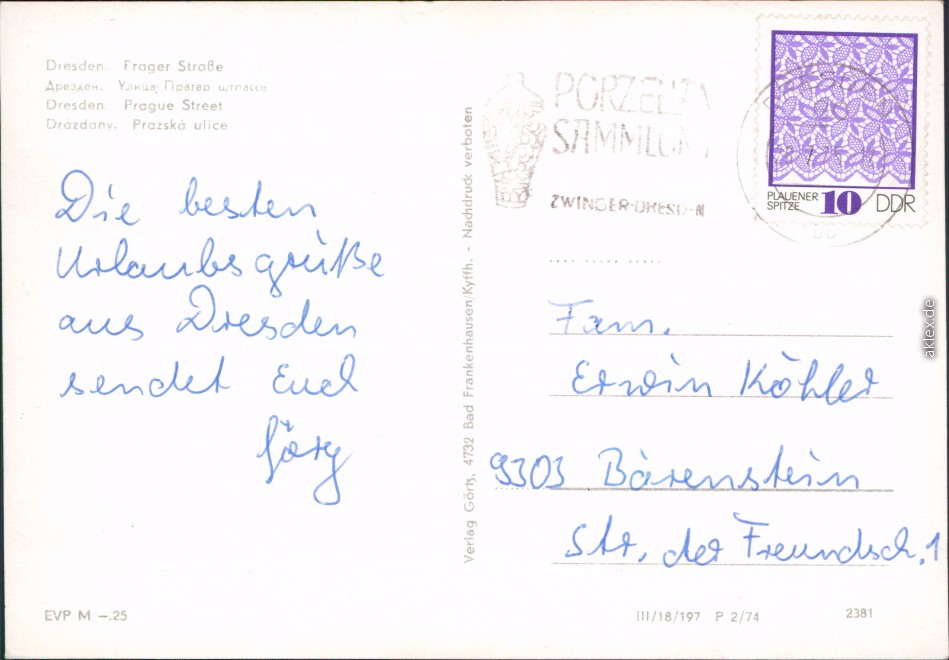 Dresden. Prager Straße
Дрезден. Улица Прагер штрассе
Dresden. Prague Street
Drázdany. Prazská ulice
Die besten
Urlaubsgrüße
aus Dresden
sendet Euch
Jörg
EVP M –.25
Verlag Görtz, 4732 Bad Frankenhausen/Kyffh. - Nachdruck verboten
SAMMLUN
ZWINGER-DRESD
PLAUENER
SPITZE 10 DDR
Fam.
Erwin Köhler
9303 Bärenstein
Str. der Freundsch. 1
III/18/197 P 2/74 2381
aklex.de